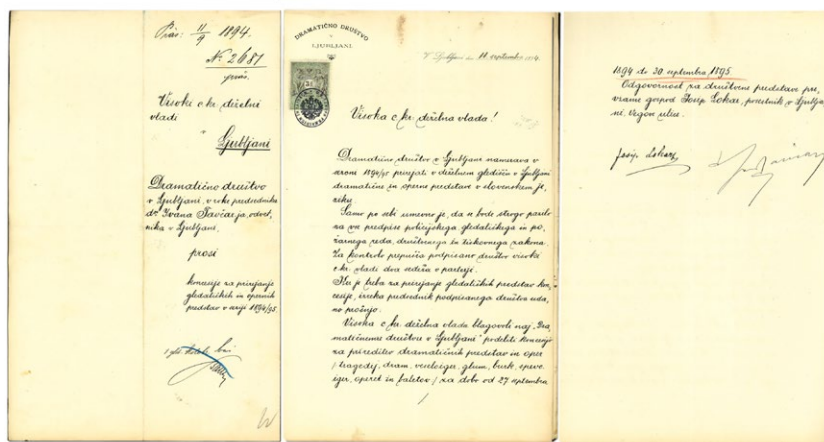 Präs: 11/9 1894.
№ 2681
präs.
Visoki c kr. deželni
vladi
v
Ljubljani
Dramatično društvo
v Ljubljani, v roke predsednika
dr. Ivana Tavčarja, odvet,
nika v Ljubljani.
prosi
koncesije za prirejanje
gledaliških in opernih
predstav v sezoni 1894/95.
DRAMATIČNO DRUŠTVO
V
LJUBLJANI.
V Ljubljani dne 11. septembra 1894.
Visoka c. kr. deželna vlada!
Dramatično društvo v Ljubljani namerava v
sezoni 1894/95 prirejati v deželnem gledišču v Ljubljani
dramatične in operne predstave v slovenskem je,
ziku.
Samo po sebi umevno je, da se bode strogo pazilo
na vse predpise policijskega gledališkega in po,
žarnega reda, društvenega in tiskovnega zakona.
Za kontrolo prepušča podpisano društvo visoki
c kr. vladi dva sedeža v parterji.
Ker je treba za prirejanje gledaliških predstav kon,
cesije, izreka predsednik podpisanega društva uda,
no prošnjo:
Visoka c. kr. deželna vlada blagovoli naj „Dra,
matičnemu društvu v Ljubljani" podeliti koncesijo
za prireditev dramatičnih predstav in oper
/tragedij, dram, veseloiger, glum, burk, spevo,
iger, operet in baletov/ za dobo od 27 septembra
1894 do 30 septembra, 1895.
Odgovornost za društvene predstave pre,
vzame gospod Josip Lokar, posestnik v Ljublja,
ni, Vegove ulice.
Josip Lokar